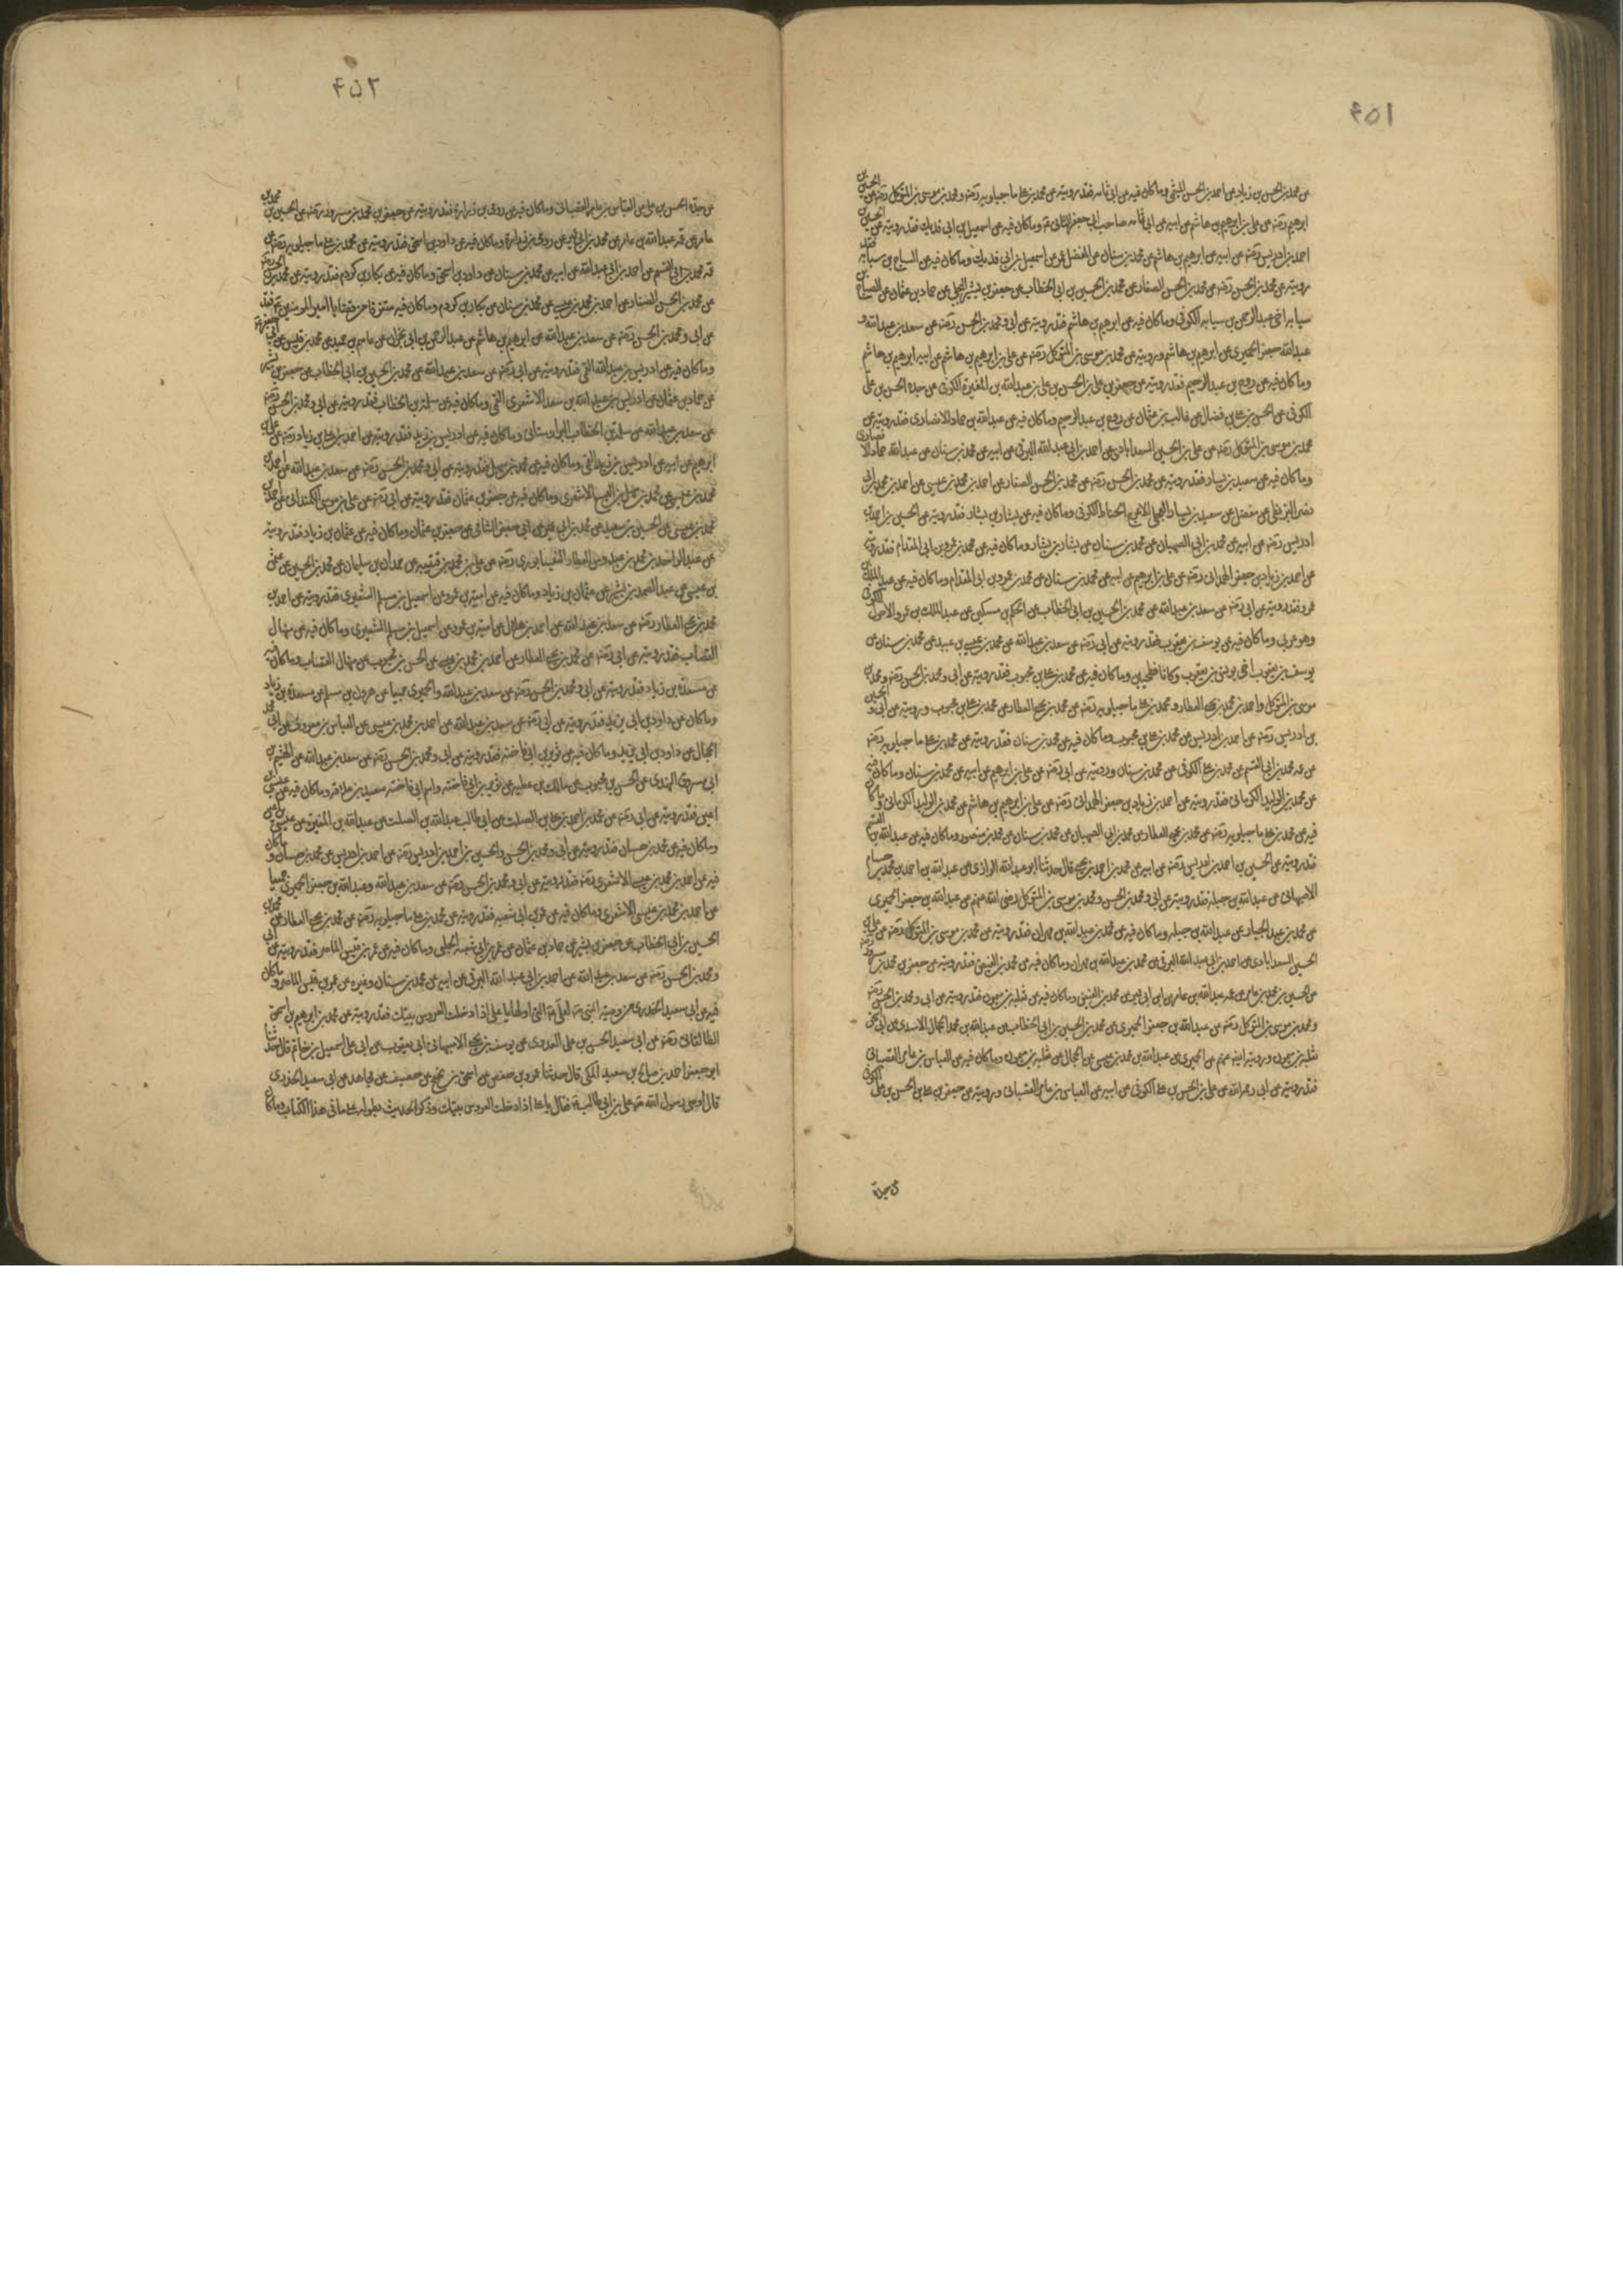 ٤٥١
عن محمد بن الحسن بن زياد عن احمد بن الحسن الميثمي وما كان فيه عن ابي ثمامه فقد رويته عن محمد بن علي ماجيلويه رضه ومحمد بن موسى بن المتوكل رضه عن علي بن
ابرهيم رضه عن علي بن ابرهيم بن هاشم عن ابيه عن ابي ثمامه صاحب ابي جعفر الثاني ع وما كان فيه عن اسمعيل بن ابي فديك فقد رويته عن الحسين بن
احمد بن ادريس رضه عن ابيه عن ابرهيم بن هاشم عن محمد بن سنان عن المفضل بن عمر عن اسمعيل بن ابي فديك وما كان فيه عن الصباح بن سيابه فقد
رويته عن محمد بن الحسن رضه عن محمد بن الحسن الصفار عن محمد بن الحسين بن ابي الخطاب عن جعفر بن بشير البجلي عن حماد بن عثمان عن الصباح بن
سيابه اخي عبد الرحمن بن سيابه الكوفي وما كان فيه عن ابرهيم بن هاشم فقد رويته عن ابي ومحمد بن الحسن رضه عن سعد بن عبد الله و
عبد الله جعفر الحميري عن ابرهيم بن هاشم ورويته عن محمد بن موسى بن المتوكل رضه عن علي بن ابرهيم بن هاشم عن ابيه ابرهيم بن هاشم
وما كان فيه عن روح بن عبد الرحيم فقد رويته عن جعفر بن علي بن الحسن بن علي بن عبد الله بن المغيرة الكوفي عن جده الحسن بن علي
الكوفي عن الحسن بن علي بن فضال عن غالب بن عثمان عن روح بن عبد الرحيم وما كان فيه عن عبد الله بن حماد الانصاري فقد رويته عن
محمد بن موسى بن المتوكل رضه عن علي بن الحسين السعدابادي عن احمد بن ابي عبد الله البرقي عن ابيه عن محمد بن سنان عن عبد الله حماد الانصاري
وما كان فيه عن سعيد بن يسار فقد رويته عن محمد بن الحسن رضه عن محمد بن الحسن الصفار عن احمد بن محمد بن عيسى عن احمد بن محمد بن ابي
نصر البزنطي عن مفضل عن سعيد بن يسار العجلي الاعرج الحناط الكوفي وما كان فيه عن بشار بن بشار فقد رويته عن الحسين بن احمد بن
ادريس رضه عن ابيه عن محمد بن ابي الصهبان عن محمد بن سنان عن بشار بن بشار وما كان فيه عن محمد بن عمرو بن ابي المقدام فقد رويته
عن احمد بن زياد بن جعفر الهمداني رضه عن علي بن ابرهيم عن ابيه عن محمد بن سنان عن محمد بن عمرو بن ابي المقدام وما كان فيه عن عبد الملك بن
عمرو فقد رويته عن ابي رضه عن سعد بن عبد الله عن محمد بن الحسين بن ابي الخطاب عن الحكم بن مسكين عن عبد الملك بن عمرو الاحول الكوفي
وهو عربي وما كان فيه عن يوسف بن يعقوب فقد رويته عن ابي رضه عن سعد بن عبد الله عن محمد بن عيسى بن عبيد عن محمد بن سنان عن
يوسف بن يعقوب اخي يونس بن يعقوب وكانا فطحيين وما كان فيه عن محمد بن علي بن محبوب فقد رويته عن ابي ومحمد بن الحسن رضه ومحمد بن
موسى بن المتوكل واحمد بن محمد بن يحيى العطار ومحمد بن علي ماجيلويه رضه عن محمد بن يحيى العطار عن محمد بن علي بن محبوب ورويته عن ابي و الحسين
بن ادريس رضه عن احمد بن ادريس عن محمد بن علي بن محبوب وما كان فيه عن محمد بن سنان فقد رويته عن محمد بن علي ماجيلويه رضه
عن عمه محمد بن ابي القسم عن محمد بن علي الكوفي عن محمد بن سنان ورويته عن ابي رضه عن علي بن ابرهيم عن ابيه عن محمد بن سنان وما كان فيه
عن محمد بن الوليد الكرماني فقد رويته عن احمد بن زياد بن جعفر الهمداني رضه عن علي بن ابرهيم بن هاشم عن محمد بن الوليد الكرماني وما كان
فيه عن محمد بن علي ماجيلويه رضه عن محمد بن يحيى العطار عن محمد بن ابي الصهبان عن محمد بن سنان عن محمد بن منصور وما كان فيه عن عبد الله بن القسم
فقد رويته عن الحسين بن احمد بن ادريس رضه عن ابيه عن محمد بن احمد بن يحيى قال حدثنا ابو عبد الله الرازي عن عبد الله بن احمد بن محمد بن
الاصبهاني عن عبد الله بن جبله فقد رويته عن ابي ومحمد بن الحسن ومحمد بن موسى بن المتوكل رضي الله عنهم عن عبد الله بن جعفر الحميري
عن محمد بن عبد الجبار عن عبد الله بن جبله وما كان فيه عن محمد بن عبد الله بن مهران فقد رويته عن محمد بن موسى بن المتوكل رضه عن علي بن
الحسين السعدابادي عن احمد بن ابي عبد الله البرقي عن محمد بن عبد الله بن مهران وما كان فيه عن محمد بن الفيض فقد رويته عن جعفر بن محمد بن مسرور
عن الحسين بن محمد بن عامر عن عمه عبد الله بن عامر عن ابن ابي عمير عن محمد بن الفيض وما كان فيه عن ثعلبه بن ميمون فقد رويته عن ابي ومحمد بن الحسن رضه
ومحمد بن موسى بن المتوكل رضه عن عبد الله بن جعفر الحميري عن محمد بن الحسين بن ابي الخطاب عن عبد الله بن محمد الحجال الاسدي عن ابي اسحق
ثعلبه بن ميمون ورويته ايضا عنهم عن الحميري عن عبد الله بن محمد بن عيسى عن الحجال عن ثعلبه بن ميمون وما كان فيه عن العباس بن عامر القصباني
فقد رويته عن ابي رحمه الله عن علي بن الحسن بن علي الكوفي عن ابيه عن العباس بن عامر القصباني ورويته عن جعفر بن علي بن الحسن بن علي الكوفي
عن جده
٤٥٢
عن جده الحسن بن علي عن العباس بن عامر القصباني وما كان فيه عن رومي بن زراره فقد رويته عن جعفر بن محمد بن مسرور رضه عن الحسين بن محمد بن
عامر عن عمه عبد الله بن عامر عن محمد بن ابي عمير عن رومي بن زراره وما كان فيه عن داود بن اسحق فقد رويته عن محمد بن علي ماجيلويه رضه عن
عمه محمد بن ابي القسم عن احمد بن ابي عبد الله عن ابيه عن محمد بن سنان عن داود بن اسحق وما كان فيه عن بكار بن كردم فقد رويته عن محمد بن الحسن رضه
عن محمد بن الحسن الصفار عن احمد بن محمد بن عيسى عن محمد بن سنان عن بكار بن كردم وما كان فيه متفرقا من قضايا امير المومنين ع فقد رويته
عن ابي ومحمد بن الحسن رضه عن سعد بن عبد الله عن ابرهيم بن هاشم عن عبد الرحمن بن ابي نجران عن عاصم بن حميد عن محمد بن قيس عن ابي جعفر ع
وما كان فيه عن ادريس بن عبد الله القمي فقد رويته عن ابي رضه عن سعد بن عبد الله عن محمد بن الحسين بن ابي الخطاب عن جعفر بن بشير
عن حماد بن عثمان عن ادريس بن عبد الله بن سعد الاشعري القمي وما كان فيه عن سلمه بن الخطاب فقد رويته عن ابي ومحمد بن الحسن رضه
عن سعد بن عبد الله عن سلمه بن الخطاب البراوستاني وما كان فيه عن ادريس بن زيد فقد رويته عن احمد بن علي بن زياد رضه عن علي بن
ابرهيم عن ابيه عن ادريس بن زيد القمي وما كان فيه عن محمد بن سهل فقد رويته عن ابي ومحمد بن الحسن رضه عن سعد بن عبد الله عن احمد بن
محمد بن عيسى عن محمد بن سهل بن اليسع الاشعري وما كان فيه عن جعفر بن عثمان فقد رويته عن ابي رضه عن علي بن موسى الكمنداني عن احمد بن
محمد بن عيسى عن الحسين بن سعيد عن محمد بن ابي عمير عن ابي جعفر الشامي عن جعفر بن عثمان وما كان فيه عن عثمان بن زياد فقد رويته
عن عبد الواحد بن محمد بن عبدوس العطار النيسابوري رضه عن علي بن محمد بن قتيبه عن حمدان بن سليمان عن محمد بن الحسين عن عثمن
بن عيسى عن عبد الصمد بن بشير عن عثمان بن زياد وما كان فيه عن اميه بن عمرو عن اسمعيل بن مسلم الشعيري فقد رويته عن احمد بن
محمد بن يحيى العطار رضه عن سعد بن عبد الله عن احمد بن هلال عن اميه بن عمرو عن اسمعيل بن مسلم الشعيري وما كان فيه عن منهال
القصاب فقد رويته عن ابي رضه عن محمد بن يحيى العطار عن احمد بن محمد بن عيسى عن الحسن بن محبوب عن منهال القصاب وما كان فيه
عن مسعده بن زياد فقد رويته عن ابي ومحمد بن الحسن رضه عن سعد بن عبد الله والحميري جميعا عن هرون بن مسلم عن مسعدة بن زياد
وما كان عن داود بن ابي يزيد فقد رويته عن ابي رضه عن سعد بن عبد الله عن احمد بن محمد بن عيسى عن العباس بن معروف عن ابي محمد
الحجال عن داود بن ابي يزيد وما كان فيه عن ثوير بن ابي فاخته فقد رويته عن ابي ومحمد بن الحسن رضه عن سعد بن عبد الله عن الهيثم بن
ابي مسروق النهدي عن الحسن بن محبوب عن مالك بن عطيه عن ثوير بن ابي فاخته واسم ابي فاخته سعيد بن علاقه وما كان فيه عن عيسى بن
اعين فقد رويته عن ابي رضه عن محمد بن احمد بن علي بن الصلت عن ابي طالب عبد الله بن الصلت عن عبد الله بن المغيرة عن عيسى بن اعين
وما كان فيه عن محمد بن حسان فقد رويته عن ابي ومحمد بن الحسن والحسين بن احمد بن ادريس رضه عن احمد بن ادريس عن محمد بن حسان وما كان
فيه عن احمد بن محمد بن عيسى الاشعري رضه فقد رويته عن ابي ومحمد بن الحسن رضه عن سعد بن عبد الله وعبد الله بن جعفر الحميري جميعا
عن احمد بن محمد بن عيسى الاشعري وما كان فيه عن عمر بن ابي شعبه فقد رويته عن محمد بن علي ماجيلويه رضه عن محمد بن يحيى العطار عن محمد بن
الحسين بن ابي الخطاب عن جعفر بن بشير عن حماد بن عثمان عن عمر بن ابي شعبه الحلبي وما كان فيه عن عمر بن قيس الماصر فقد رويته عن ابي
ومحمد بن الحسن رضه عن سعد بن عبد الله عن احمد بن ابي عبد الله البرقي عن ابيه عن محمد بن سنان وغيره عن عمر بن قيس الماصر وما كان
فيه عن ابي سعيد الخدري من وصيه النبي ص لعلي ع التي اولها يا علي اذا دخلت العروس بيتك فقد رويته عن محمد بن ابرهيم بن اسحق
الطالقاني رضه عن ابي سعيد الحسن بن علي العدوي عن يوسف بن يحيى الاصبهاني ابي يعقوب عن ابي علي اسمعيل بن حاتم قال حدثنا
ابو جعفر احمد بن صالح بن سعيد المكي قال حدثنا عمرو بن حفص عن اسحق بن نجيح عن حصيف عن مجاهد عن ابي سعيد الخدري
قال اوصى رسول الله ص علي بن ابي طالب ع فقال يا علي اذا دخلت العروس بيتك وذكر الحديث بطوله على ما في هذا الكتاب وما كان